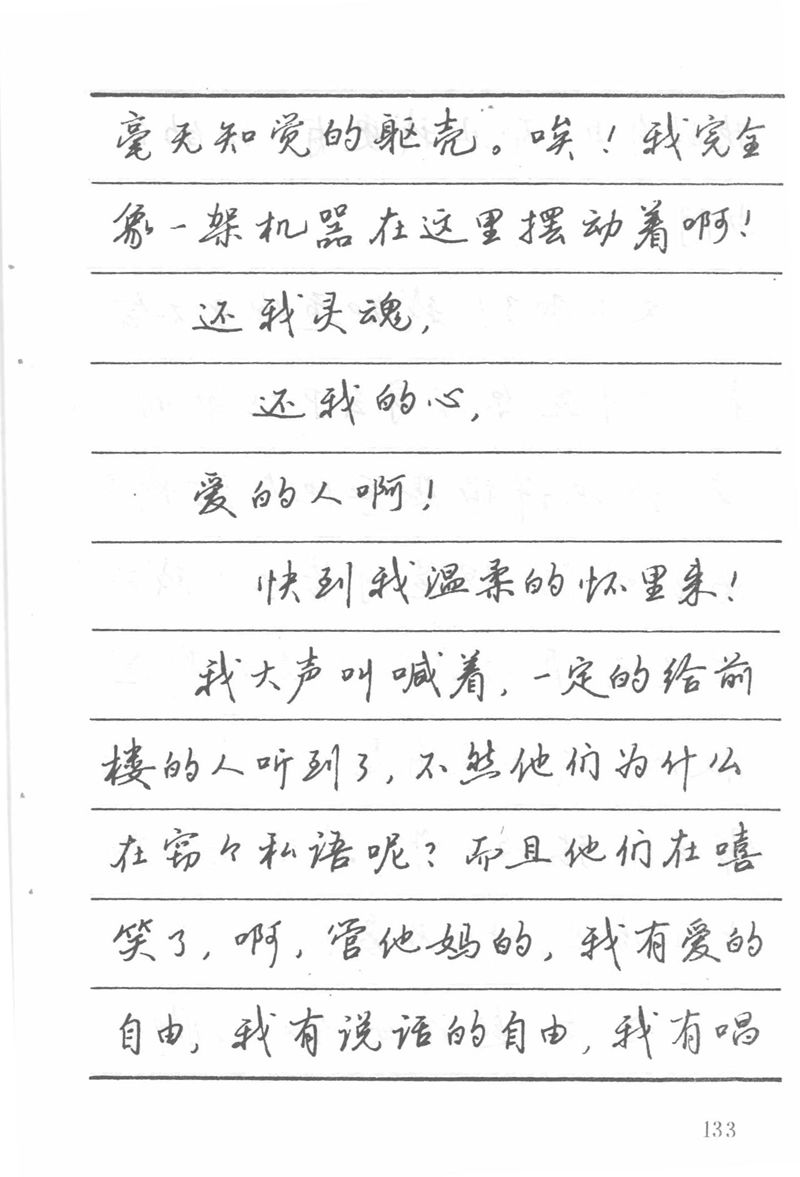 毫无知觉的躯壳。唉！我完全
象一架机器在这里摆动着啊！
还我灵魂，
还我的心，
爱的人啊！
快到我温柔的怀里来！
我大声叫喊着，一定的给前
楼的人听到了，不然他们为什么
在窃々私语呢？而且他们在嘻
笑了，啊，管他妈的，我有爱的
自由，我有说话的自由，我有唱
133